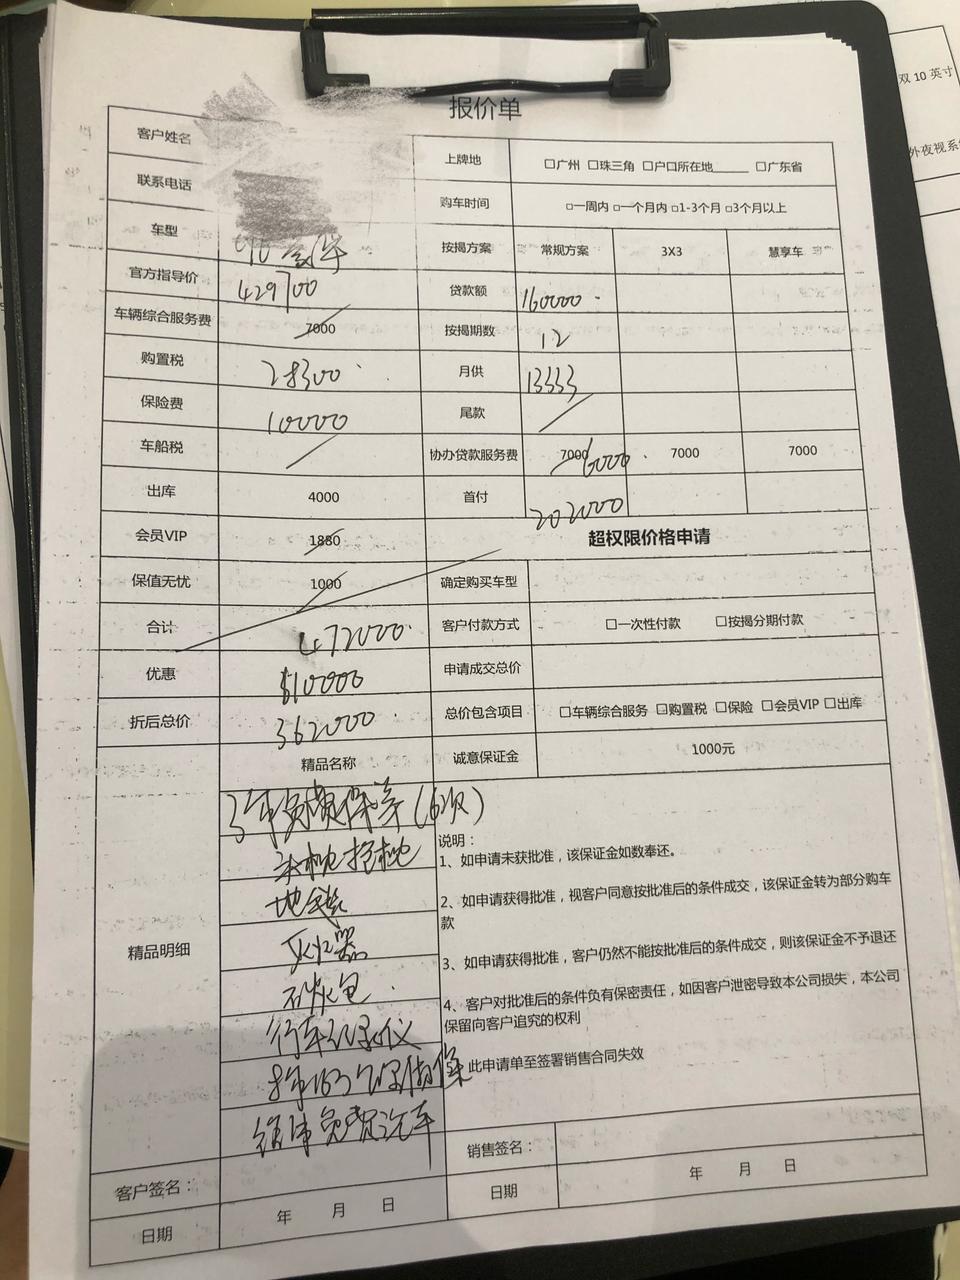 双10英寸
外夜视系
报价单
客户姓名
上牌地 □广州 □珠三角 □户口所在地______ □广东省
联系电话
购车时间 □一周内 □一个月内 □1-3个月 □3个月以上
车型
按揭方案 常规方案 3X3 慧享车
官方指导价 429700
贷款额 160000
车辆综合服务费 7000
按揭期数 12
购置税 28300
月供 13333
保险费 10000
尾款
车船税
协办贷款服务费 7000 6000 7000 7000
出库 4000
首付 202000
会员VIP 1880
超权限价格申请
保值无忧 1000
确定购买车型
合计 472000
客户付款方式 □一次性付款 □按揭分期付款
优惠 110000
申请成交总价
折后总价 362000
总价包含项目 □车辆综合服务 □购置税 □保险 □会员VIP □出库
精品名称
诚意保证金 1000元
精品明细
3年免费保养(6次)
头枕抱枕
地毯
灭火器
石炭包
行车记录仪
终身免费洗车
说明：
1、如申请未获批准，该保证金如数奉还。
2、如申请获得批准，视客户同意按批准后的条件成交，该保证金转为部分购车
款
3、如申请获得批准，客户仍然不能按批准后的条件成交，则该保证金不予退还
4、客户对批准后的条件负有保密责任，如因客户泄密导致本公司损失，本公司
保留向客户追究的权利
此申请单至签署销售合同失效
客户签名：
销售签名：
日期 年 月 日
日期 年 月 日